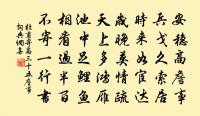 安穩高詹事
兵戈久索居
時來如宦達
歲晚莫情疏
天上多鴻雁
池中足鯉魚
相看過半百
不寄一行書
杜甫寄高三十五詹事
詞典網集